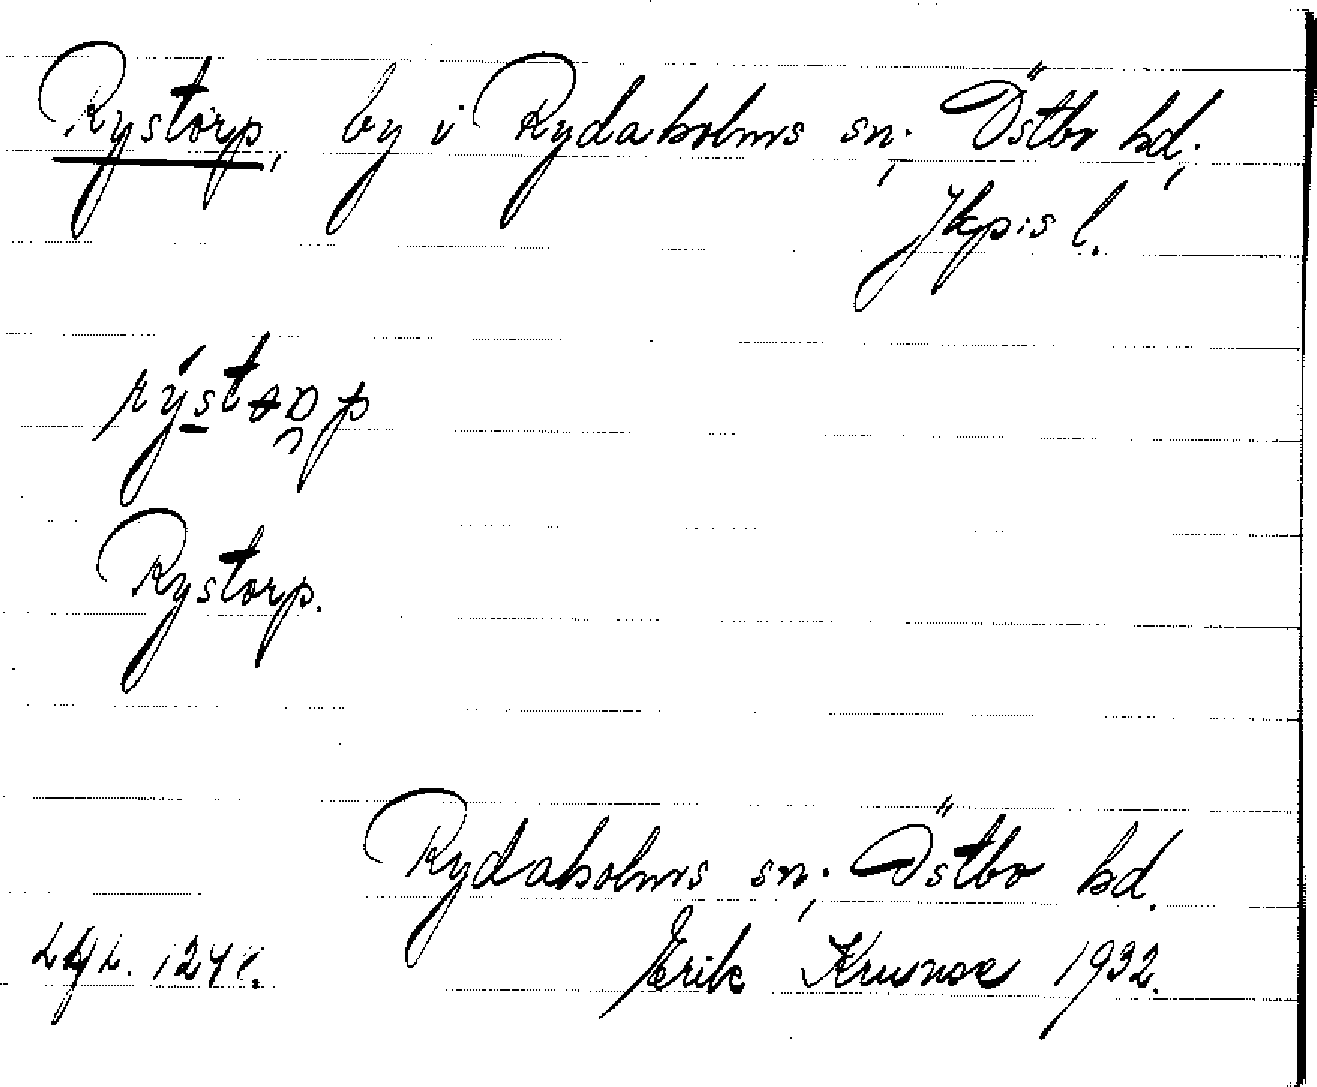 Rystorp, by i Rydaholms sn; Östbo hd;
Jkp:s l.
Rystorp.
Rydaholms sn; Östbo hd.
Erik Krunoe 1932.